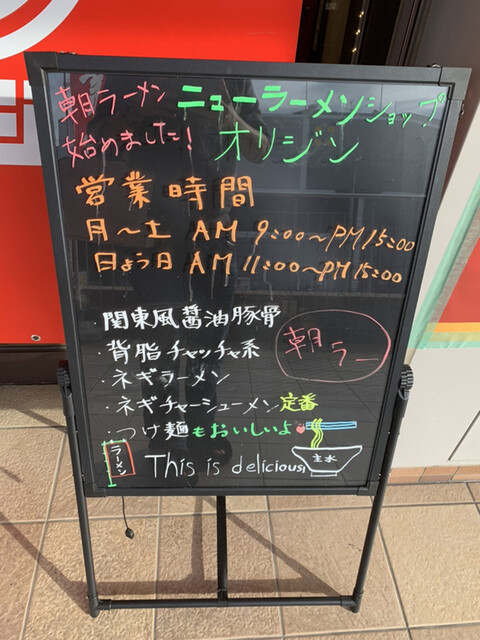 朝ラーメン
始めました!
ニューラーメンショップ
オリジン
営業時間
月〜土 AM 9:00〜PM15:00
日よう日 AM 11:00〜PM15:00
・関東風醤油豚骨
・背脂チャッチャ系
・ネギラーメン
・ネギチャーシューメン定番
・つけ麺もおいしいよ
朝ラー
ラーメン
This is delicious!